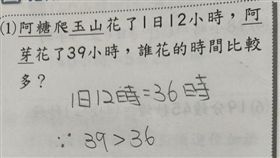 (1)阿糖爬玉山花了1日12小時，阿
芽花了39小時，誰花的時間比較
多？
1日12時=36時
∵ 39>36